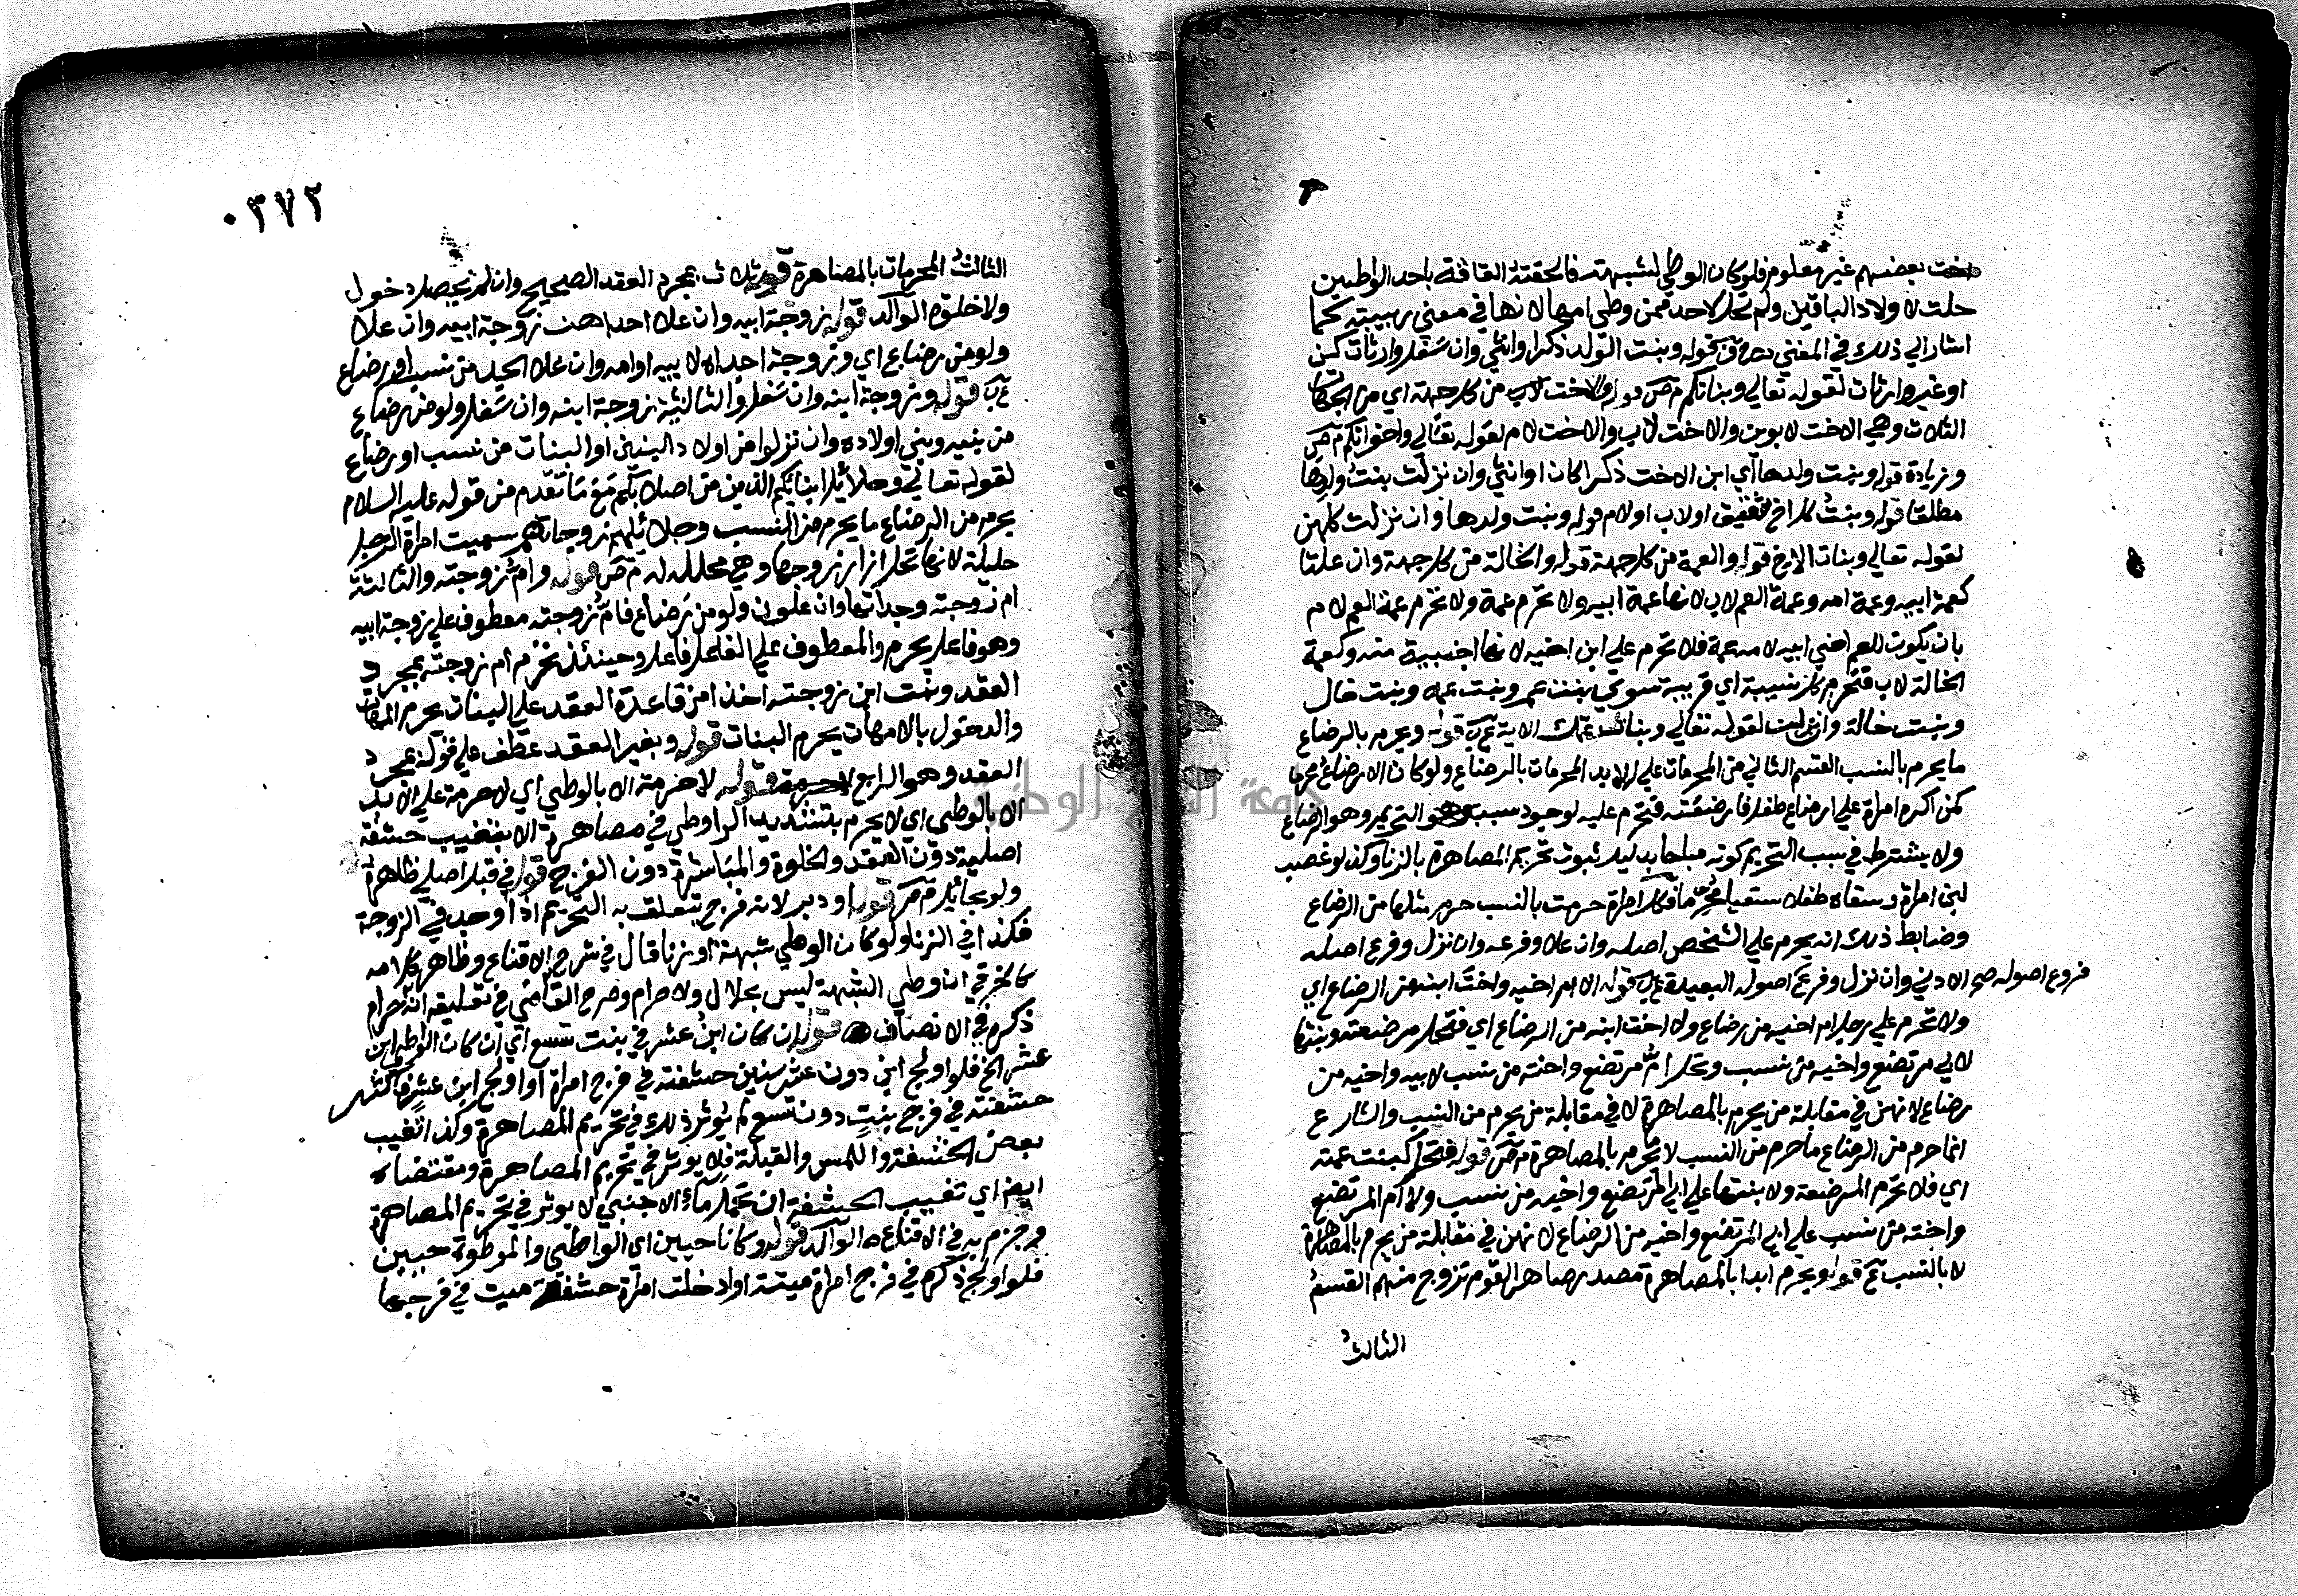 اخت بعضهم غير معلوم فلو كان الوطي لشبهة فالحقته القافة باحد الواطيين
حلت لاولاد الباقين ولم تحل لاحد ممن وطي امها لانها في معني ربيبته كما
اشار الي ذلك في المغني قوله وبنت الولد ذكرا وانثي وان سفل وارثات كن
او غير وارثات لقوله تعالي وبناتكم م ص قوله والاخت من كل جهة اي من الجهات
الثلاث وهي الاخت لابوين والاخت لاب والاخت لام لقوله تعالي واخواتكم م ص
وزيادة قوله وبنت ولدها اي ابن الاخت ذكرا كان او انثي وان نزلت بنت ولدها
مطلقا قوله وبنت كل اخ شقيق او لاب او لام قوله وبنت ولدها وان نزلت كلهن
لقوله تعالي وبنات الاخ قوله والعمة من كل جهة قوله والخالة من كل جهة وان علتا
كعمة ابيه وعمة امه وعمة العم لاب لانها عمة ابيه ولا تحرم عمة العم لام
بان يكون للعم اخي ابيه لامه عمة فلا تحرم علي ابن اخيه لانها اجنبية منه وكعمة
الخالة لاب فتحرم كل نسيبة اي قريبة سوي بنت عم وبنت عمة وبنت خال
وبنت خالة وان نزلن لقوله تعالي وبنات عمك الاية ع ب قوله ويحرم بالرضاع
ما يحرم بالنسب القسم الثاني من المحرمات علي الابد المحرمات بالرضاع ولو كان الارضاع محرما
كمن اكره امراة علي ارضاع طفل فارضعته فتحرم عليه لوجود سبب التحريم وهو الرضاع
ولا يشترط في سبب التحريم كونه مباحا بدليل ثبوت تحريم المصاهرة بالزنا وكذا لو غصب
لبن امراة وسقاه طفلا سقيا محرما فكل امراة حرمت بالنسب حرم مثلها من الرضاع
وضابط ذلك انه يحرم علي الشخص اصله وان علا وفرعه وان نزل وفرع اصله
الادني وان نزل وفرع اصوله البعيدة ع ب قوله الا ام اخيه واخت ابنه من الرضاع اي
فروع اصوله صح
ولا تحرم علي رجل ام اخيه من رضاع ولا اخت ابنه من الرضاع اي فتحل مرضعته وبنتها
لابي مرتضع واخيه من نسب وتحل ام مرتضع واخته من نسب لابيه واخيه من
رضاع لانهن في مقابلة من يحرم بالمصاهرة لا في مقابلة من يحرم من النسب والشارع
انما حرم من الرضاع ما حرم من النسب لا ما يحرم بالمصاهرة م ص قوله فتحل كبنت عمته
اي فلا تحرم المرضعة ولا بنتها علي ابي المرتضع واخيه من نسب ولا ام المرتضع
واخته من نسب علي ابي المرتضع واخيه من الرضاع لانهن في مقابلة من يحرم بالمصاهرة
لا بالنسب ع قوله ويحرم ابدا بالمصاهرة مصدر صاهر القوم تزوج منهم القسم
الثالث
٠٣٧٢
الثالث المحرمات بالمصاهرة قوله ثلاث بمجرد العقد الصحيح وان لم يحصل دخول
ولا خلوة الوالد قوله زوجة ابيه وان علا احداهن زوجة ابيه وان علا
ولو من رضاع اي وزوجة اجداه لابيه او امه وان علا الجد من نسب او رضاع
ع ب قوله وزوجة ابنه وان سفل والثالثة زوجة ابنه وان سفل ولو من رضاع
من بنيه وبني اولاده وان نزلوا من اولاد البنين او البنات من نسب او رضاع
لقوله تعالي وحلائل ابنائكم الذين من اصلابكم مع ما تقدم من قوله عليه السلام
يحرم من الرضاع ما يحرم من النسب وحلائلهم زوجاتهم سميت امراة الرجل
حليلة لانها تحل ازار زوجها وهي محللة له م ص قوله وام زوجته والثالثة
ام زوجته وجداتها وان علون ولو من رضاع فام زوجته معطوف علي زوجة ابيه
وهو فاعل يحرم والمعطوف علي الفاعل فاعل وحينئذ تحرم ام زوجته بمجرد
العقد وبنت ابن زوجته اخذا من قاعدة العقد علي البنات يحرم الامهات
والدخول بالامهات يحرم البنات قوله وبغير العقد عطف علي قوله بمجرد
العقد وهو الرابع قوله لا حرمة الا بالوطي اي لا حرمة علي الابد
الا بالوطي اي لا يحرم بتشديد الرا وطي في مصاهرة الا بتغييب حشفة
اصلية دون العقد والخلوة والمباشرة دون الفرج قوله في قبل اصلي ظاهره
ولو بحائل م ص قوله او دبر لانه فرج يتعلق به التحريم اذا وجد في الزوجة
فكذا في الزنا ولو كان الوطي بشبهة او زنا قال في شرح الاقناع وظاهر كلامه
كالخرقي ان وطي الشبهة ليس بحلال ولا حرام وصرح القاضي في تعليقه انه حرام
ذكره في الانصاف قوله ان كان ابن عشر في بنت تسع اي ان كان الواطي ابن
عشر الخ فلو اولج ابن دون عشر سنين حشفته في فرج امراة او اولج ابن عشر فاكثر
حشفته في فرج بنت دون تسع لم يؤثر ذلك في تحريم المصاهرة وكذا تغييب
بعض الحشفة واللمس والقبلة فلا يوثر في تحريم المصاهرة ومقتضاه
ايضا اي تغييب الحشفة ان تحمل ماء الاجنبي لا يوثر في تحريم المصاهرة
وجزم به في الاقناع ه الوالد قوله وكانا حيين اي الواطي والموطوة حيين
فلو اولج ذكره في فرج امراة ميتة او ادخلت امراة حشفة ميت في فرجها